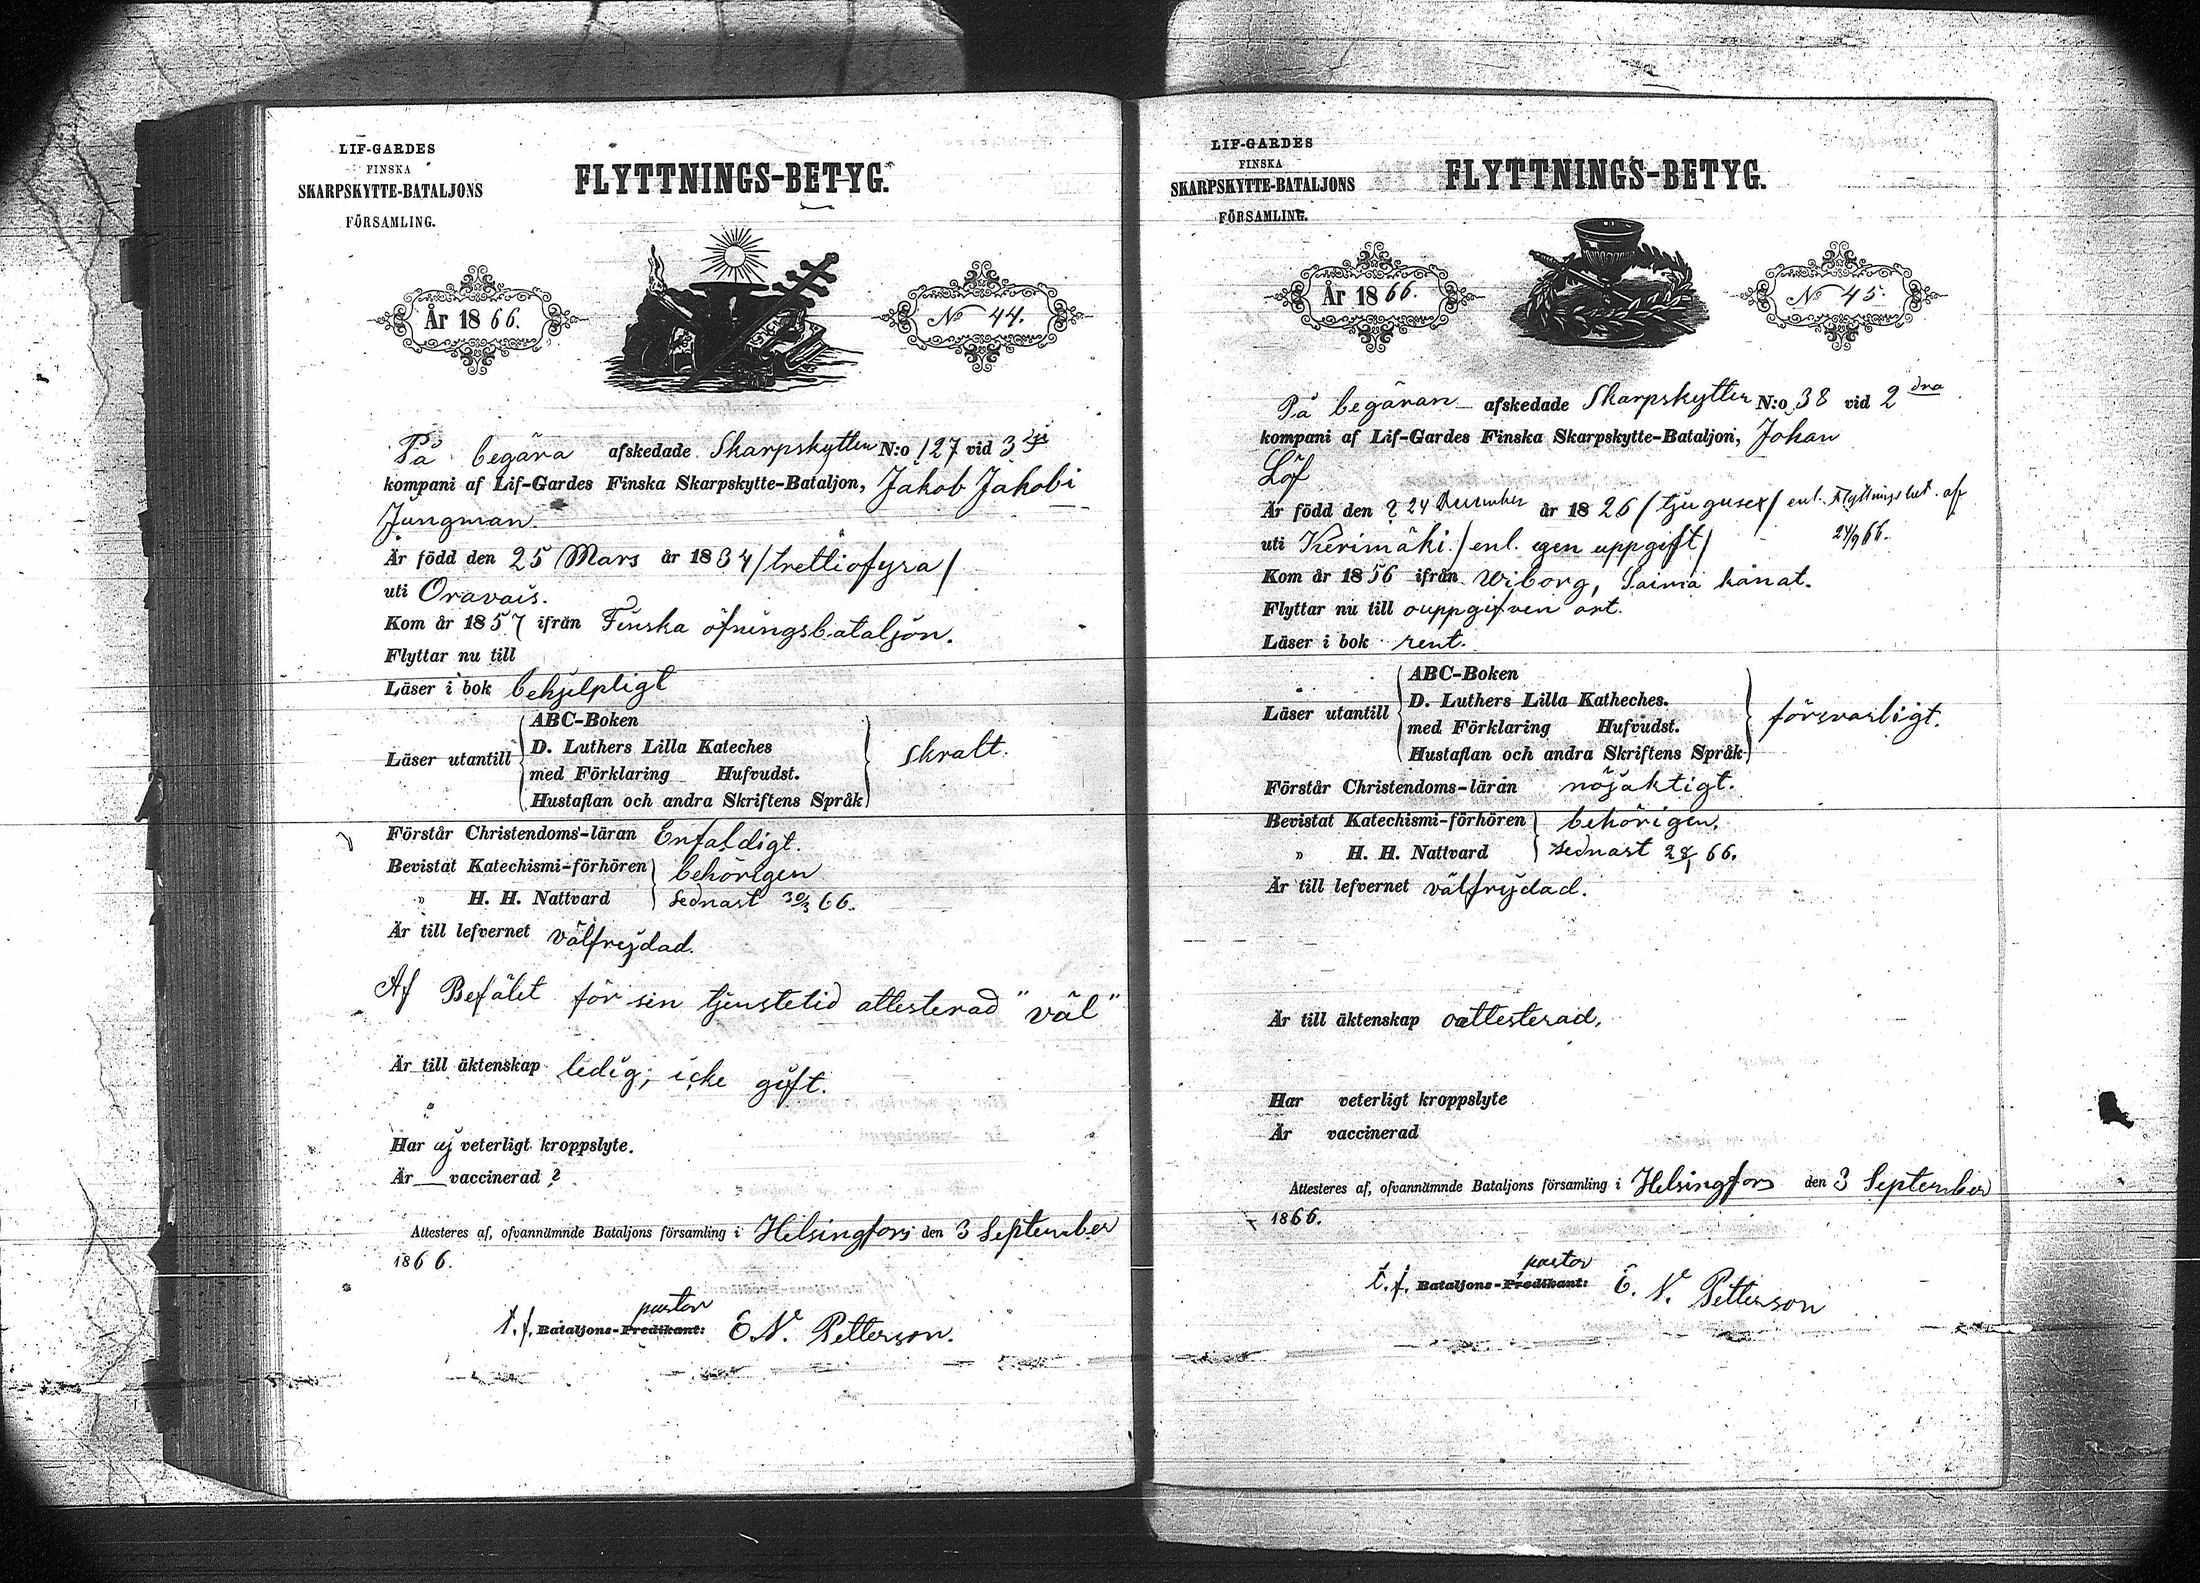 LIF-GARDES
FINSKA
SKARPSKYTTE-BATALJONS
FÖRSAMLING.
FLYTTNINGS-BETYG.
År 1866.
No 44.
På begära afskedade Skarpskytten N:o 127 vid 3dje
kompani af Lif-Gardes Finska Skarpskytte-Bataljon, Jakob Jakobi
Jungman.
Är född den 25 Mars år 1834 /trettiofyra/
uti Oravais.
Kom år 1857 ifrån Finska öfningsbataljon.
Flyttar nu till
Läser i bok behjelpligt
Läser utantill
ABC-Boken
D. Luthers Lilla Kateches
med Förklaring Hufvudst.
Hustaflan och andra Skriftens Språk
skralt.
Förstår Christendoms-läran Enfaldigt.
Bevistat Katechismi-förhören behörigen
" H. H. Nattvard sednast 30/3 66.
Är till lefvernet välfrejdad.
Af Befälet för sin tjenstetid attesterad "väl"
Är till äktenskap ledig; icke gift.
Har ej veterligt kroppslyte.
Är — vaccinerad ?
Attesteres af, ofvannämnde Bataljons församling i Helsingfors den 3 September
1866.
pastor
t.f. Bataljons-Predikant: E. N. Petterson.
LIF-GARDES
FINSKA
SKARPSKYTTE-BATALJONS
FÖRSAMLING.
FLYTTNINGS-BETYG.
År 1866.
No 45.
På begäran afskedade Skarpskytten N:o 38 vid 2dra
kompani af Lif-Gardes Finska Skarpskytte-Bataljon, Johan
Löf
Är född den ? 24 December år 1826 /tjugusex/ enl. Flyttningsbet. af
24/9 66.
uti Kerimäki. /enl. egen uppgift/
Kom år 1856 ifrån Wiborg, Saima kanal.
Flyttar nu till ouppgifven ort.
Läser i bok rent.
Läser utantill
ABC-Boken
D. Luthers Lilla Katheches.
med Förklaring Hufvudst.
Hustaflan och andra Skriftens Språk
försvarligt.
Förstår Christendoms-läran nöjaktigt.
Bevistat Katechismi-förhören behörigen.
" H. H. Nattvard sednast 28/1 66.
Är till lefvernet välfrejdad.
Är till äktenskap oattesterad.
Har veterligt kroppslyte
Är vaccinerad
Attesteres af, ofvannämnde Bataljons församling i Helsingfors den 3 September
1866.
pastor
t.f. Bataljons-Predikant: E. N. Petterson